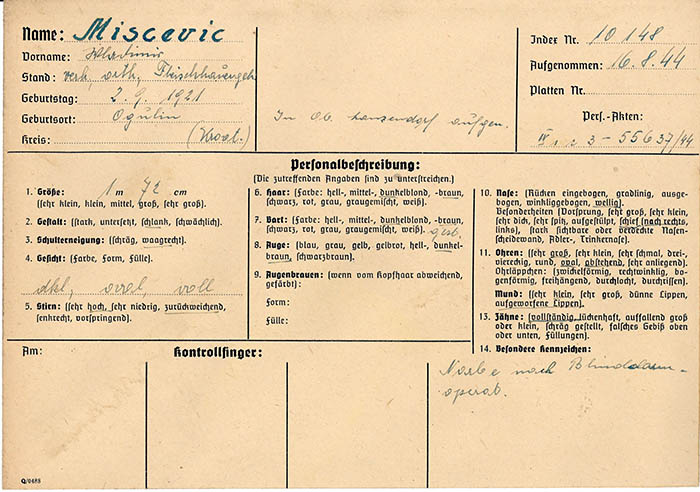 Name: Miscevic
Vorname: Wladimir
Stand: verh, orth, Fleischhauergeh
Geburtstag: 2. 9. 1921
Geburtsort: Ogulin
Kreis: (Kroat.)
In Ob. Lanzendorf aufgen.
Index Nr. 10 148
Aufgenommen: 16. 8. 44
Platten Nr.
Pers.-Akten:
3 - 55637/44
Personalbeschreibung:
(Die zutreffenden Angaben sind zu unterstreichen.)
1. Größe: 1 m 72 cm
(sehr klein, klein, mittel, groß, sehr groß).
2. Gestalt: (stark, untersetzt, schlank, schwächlich).
3. Schulterneigung: (schräg, waagrecht).
4. Gesicht: (Farbe, Form, Fülle).
dkl, oval, voll
5. Stirn: (sehr hoch, sehr niedrig, zurückweichend,
senkrecht, vorspringend).
6. Haar: (Farbe: hell-, mittel-, dunkelblond, -braun,
schwarz, rot, grau, graugemischt, weiß).
7. Bart: (Farbe: hell-, mittel-, dunkelblond, -braun,
schwarz, rot, grau, graugemischt, weiß).
8. Auge: (blau, grau, gelb, gelbrot, hell-, dunkel-
braun, schwarzbraun).
9. Augenbrauen: (wenn vom Kopfhaar abweichend,
gefärbt):
Form:
Fülle:
10. Nase: (Rücken eingebogen, gradlinig, ausge-
bogen, winkliggebogen, wellig).
Besonderheiten (Vorsprung, sehr groß, sehr klein,
sehr dick, sehr spitz, aufgestülpt, schief (nach rechts,
links), stark sichtbare oder verdeckte Nasen-
scheidewand, Adler-, Trinkernase).
11. Ohren: (sehr groß, sehr klein, sehr schmal, drei-,
viereckig, rund, oval, abstehend, sehr anliegend).
Ohrläppchen: (zwickelförmig, rechtwinklig, bo-
genförmig, freihängend, durchlocht, durchrissen).
Mund: (sehr klein, sehr groß, dünne Lippen,
aufgeworfene Lippen).
13. Zähne: (vollständig, lückenhaft, auffallend groß
oder klein, schräg gestellt, falsches Gebiß oben
oder unten, Füllungen).
14. Besondere Kennzeichen:
Narbe nach Blinddarm-
operat.
Am:
Kontrollfinger:
Q/0488